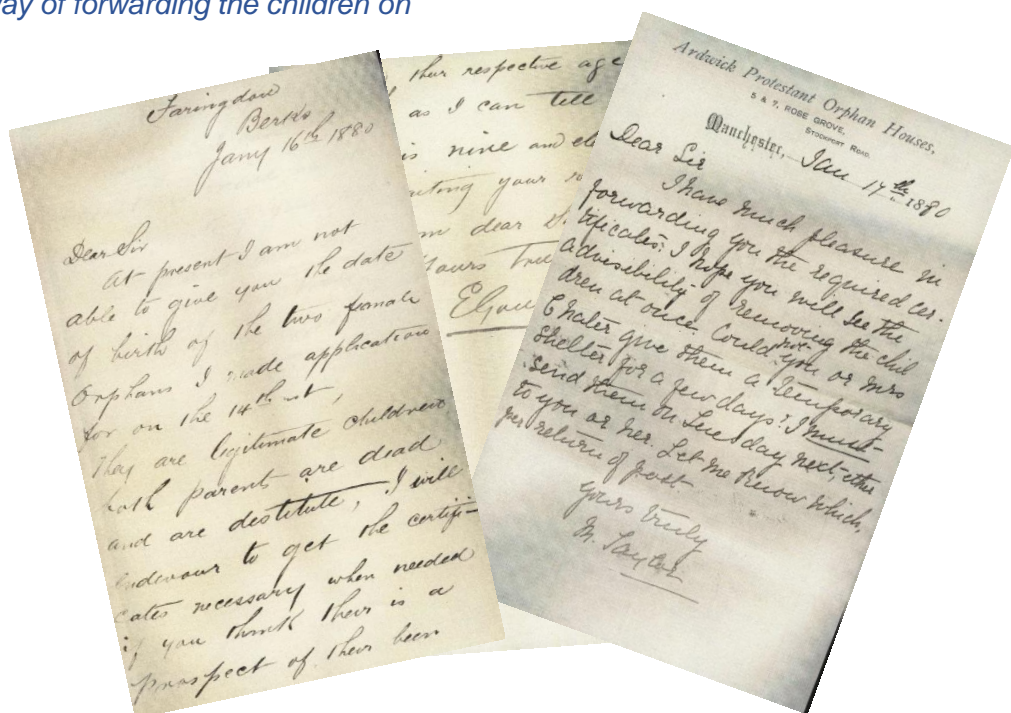 way of forwarding the children on
Faringdon
Berks
Jany 16th 1880
Dear Sir
At present I am not
able to give you the date
of birth of the two female
Orphans I made application
for on the 14th
They are legitimate children
both parents are dead
and are destitute, I will
endevour to get the certifi-
cates necessary when needed
if you think their is a
prospect of their been
their respective age
as I can tell
is nine and
your
dear
Yours
Ardwick Protestant Orphan Houses,
5 & 7, ROSE GROVE,
STOCKPORT ROAD.
Manchester, Jan 17th 1880
Dear Sir
I have much pleasure in
forwarding you the required cer-
tificates. I hope you will see the
advisibility of removing the chil
dren at once. Could not you or Mrs
Chater give them a temporary
shelter for a few days? I must
send them on Tuesday next, either
to you or her. Let me know which,
per return of post.
Yours truly
M. Taylor